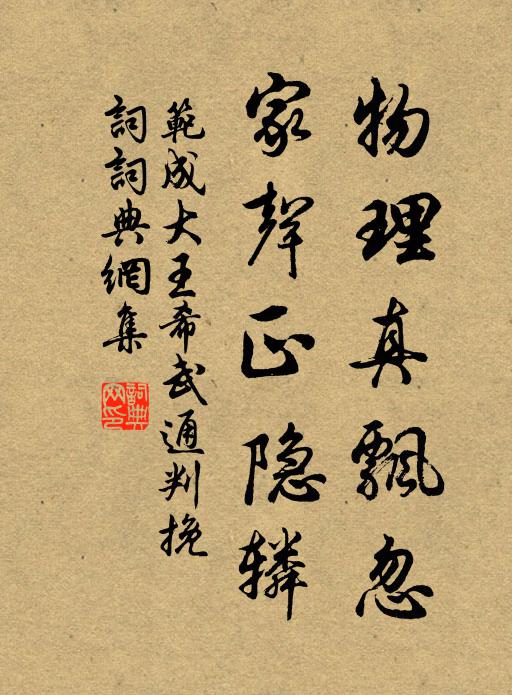 物理真飘忽
家聲正隐辚
範成大王希武通判挽
詞詞典網集
詞典网印